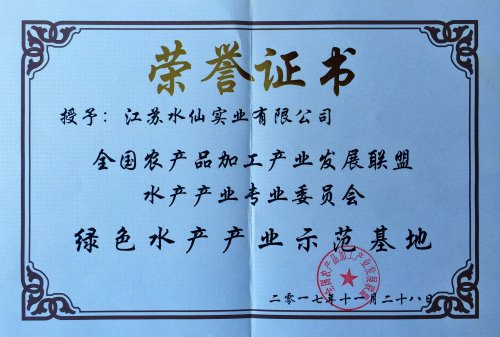 荣誉证书
授予：江苏水仙实业有限公司
全国农产品加工产业发展联盟
水产产业专业委员会
绿色水产产业示范基地
全国农产品加工产业发展联盟
二零一七年十一月二十八日